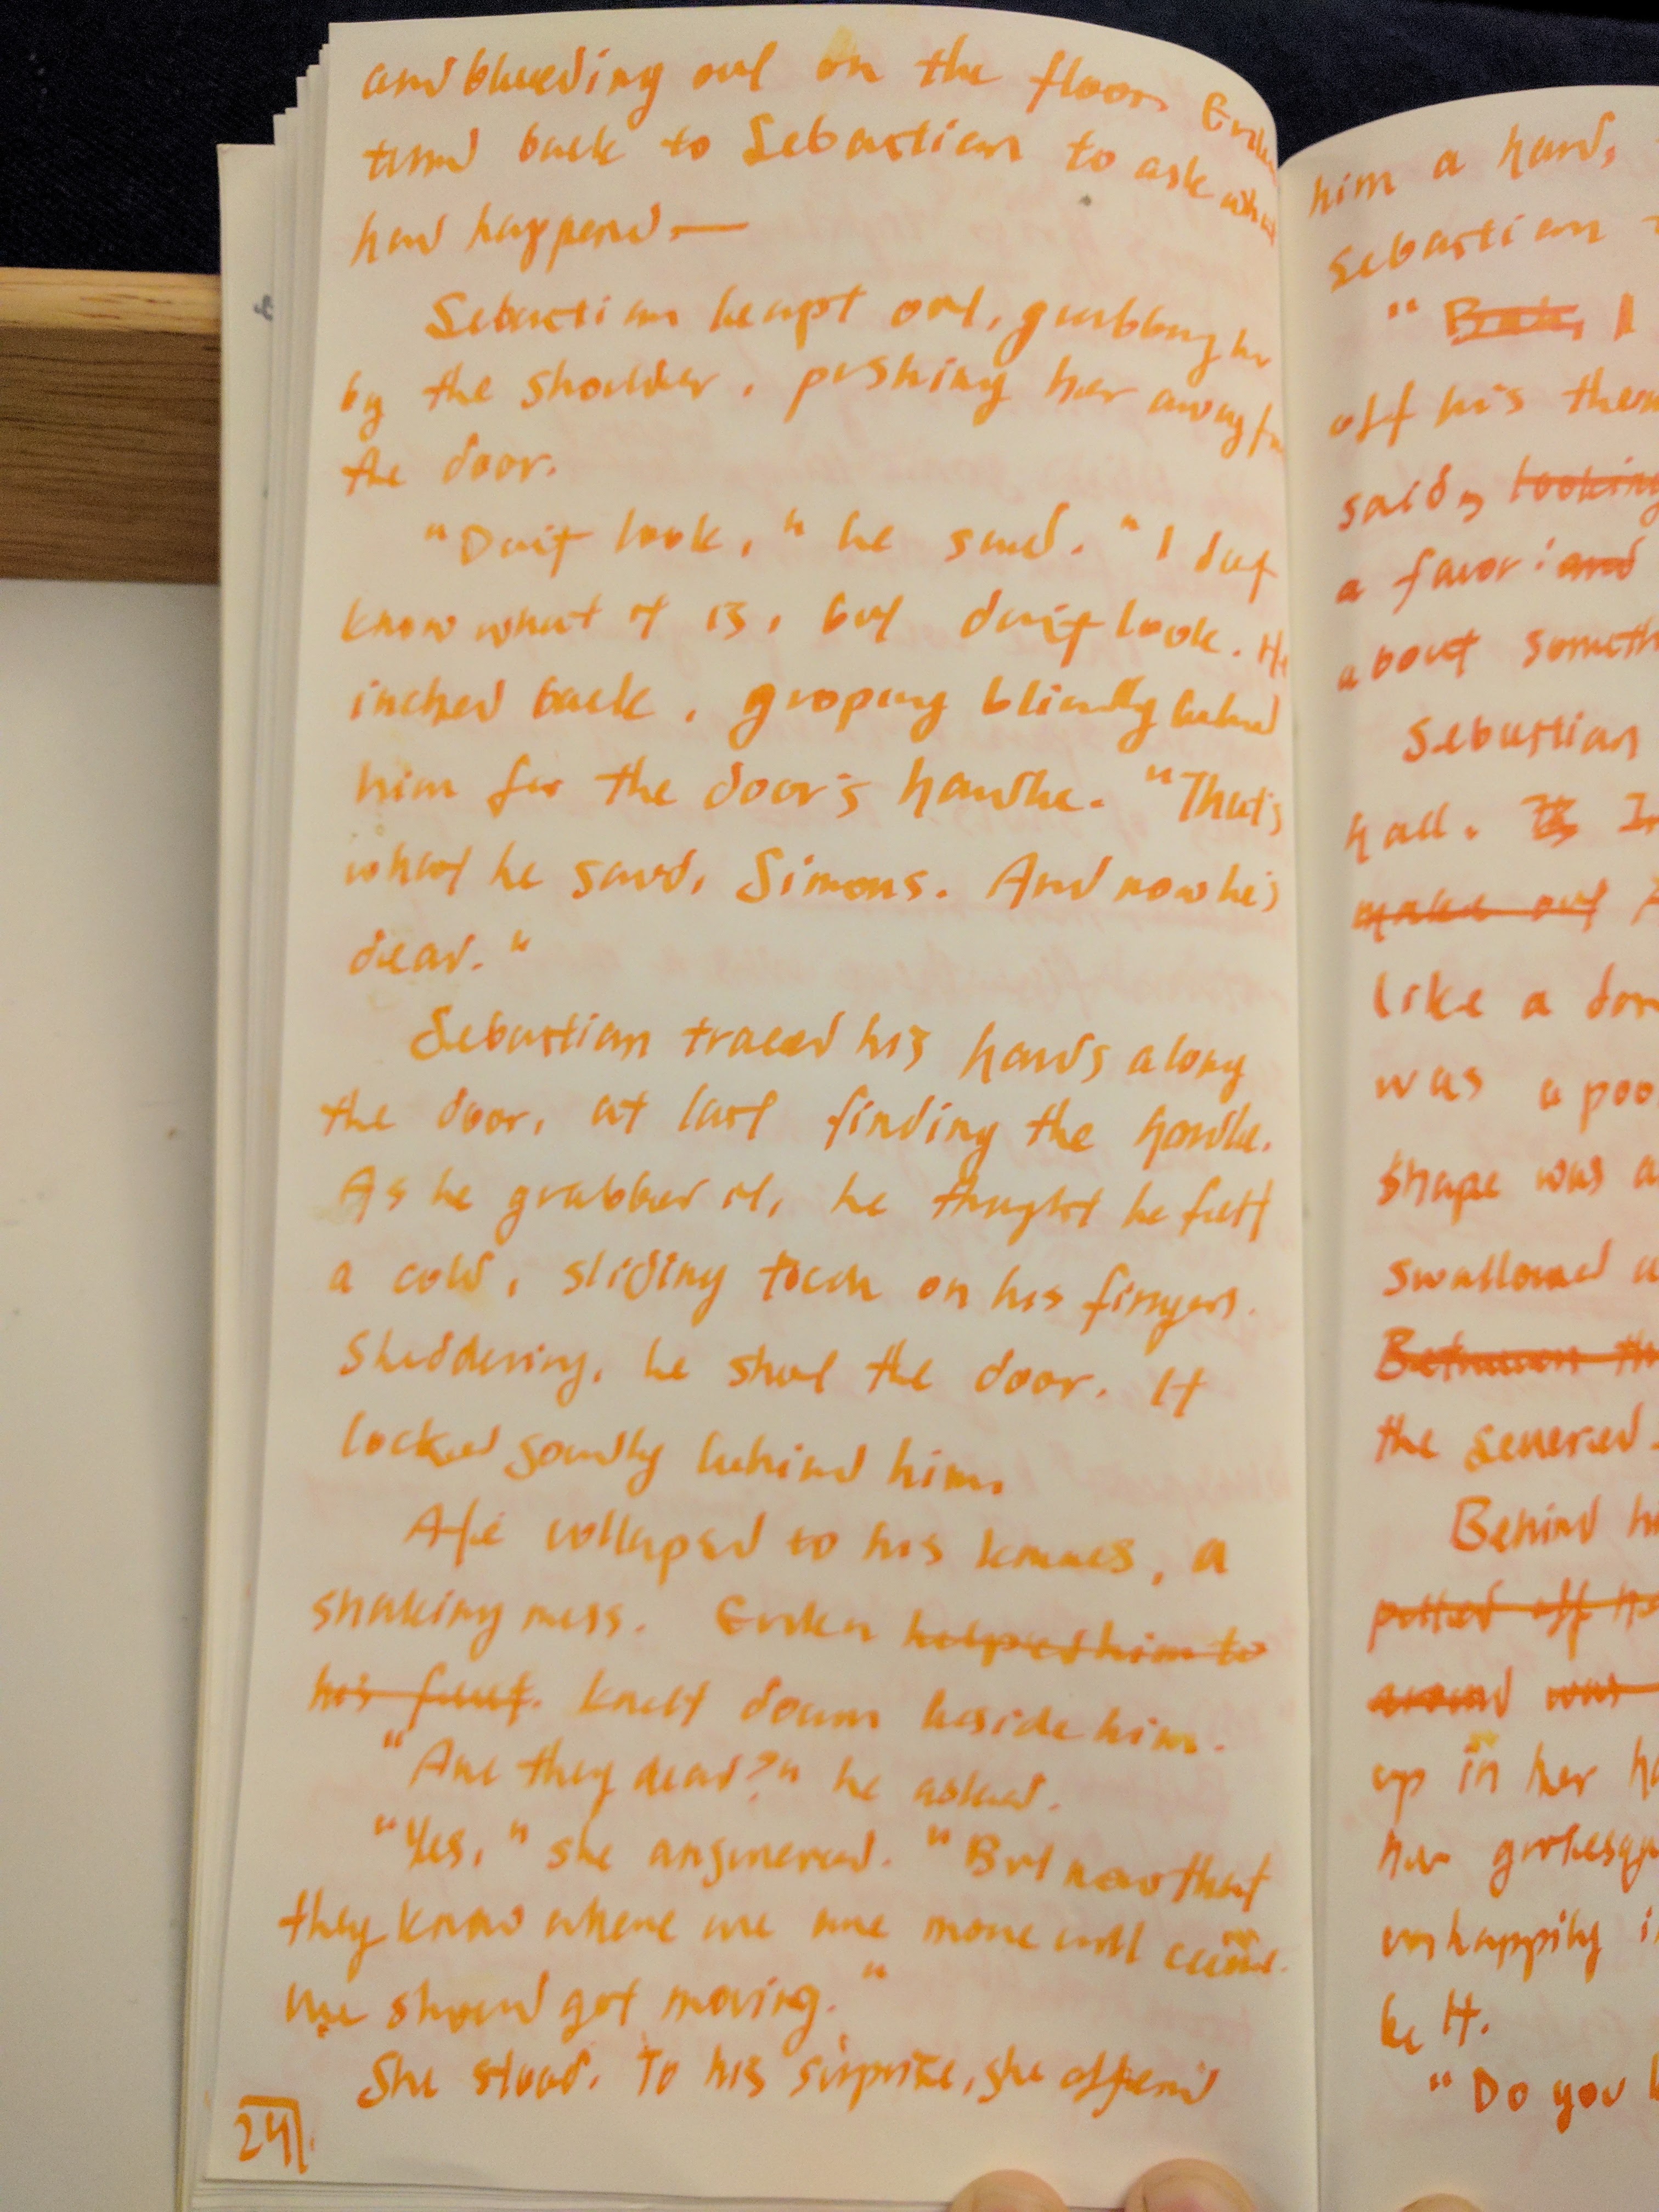 and bleeding out on the floor.
turned back to Sebastian to ask what
had happened—
Sebastian leapt out, grabbing her
by the shoulder, pushing her away from
the door.
"Don't look," he said. "I don't
know what it is, but don't look. He
inched back, groping blindly behind
him for the door's handle. "That's
what he said, Simons. And now he's
dead."
Sebastian traced his hands along
the door, at last finding the handle.
As he grabbed it, he thought he felt
a cold, sliding touch on his fingers.
Shuddering, he shut the door. It
locked soundly behind him.
collapsed to his knees, a
shaking mess. helped him to
his feet. knelt down beside him.
"Are they dead?" he asked.
"Yes," she answered. "But now that
they know where we are more will come.
We should get moving."
She stood. To his surprise, she offered
24
him a hand,
Sebastian
" I
off his
said, looking
a favor and
about
Sebastian
hall.
make out
like a
was a
shape was
swallowed
Between
the severed
Behind
pulled off
around was
up in her
her
unhappily
be it.
"Do you